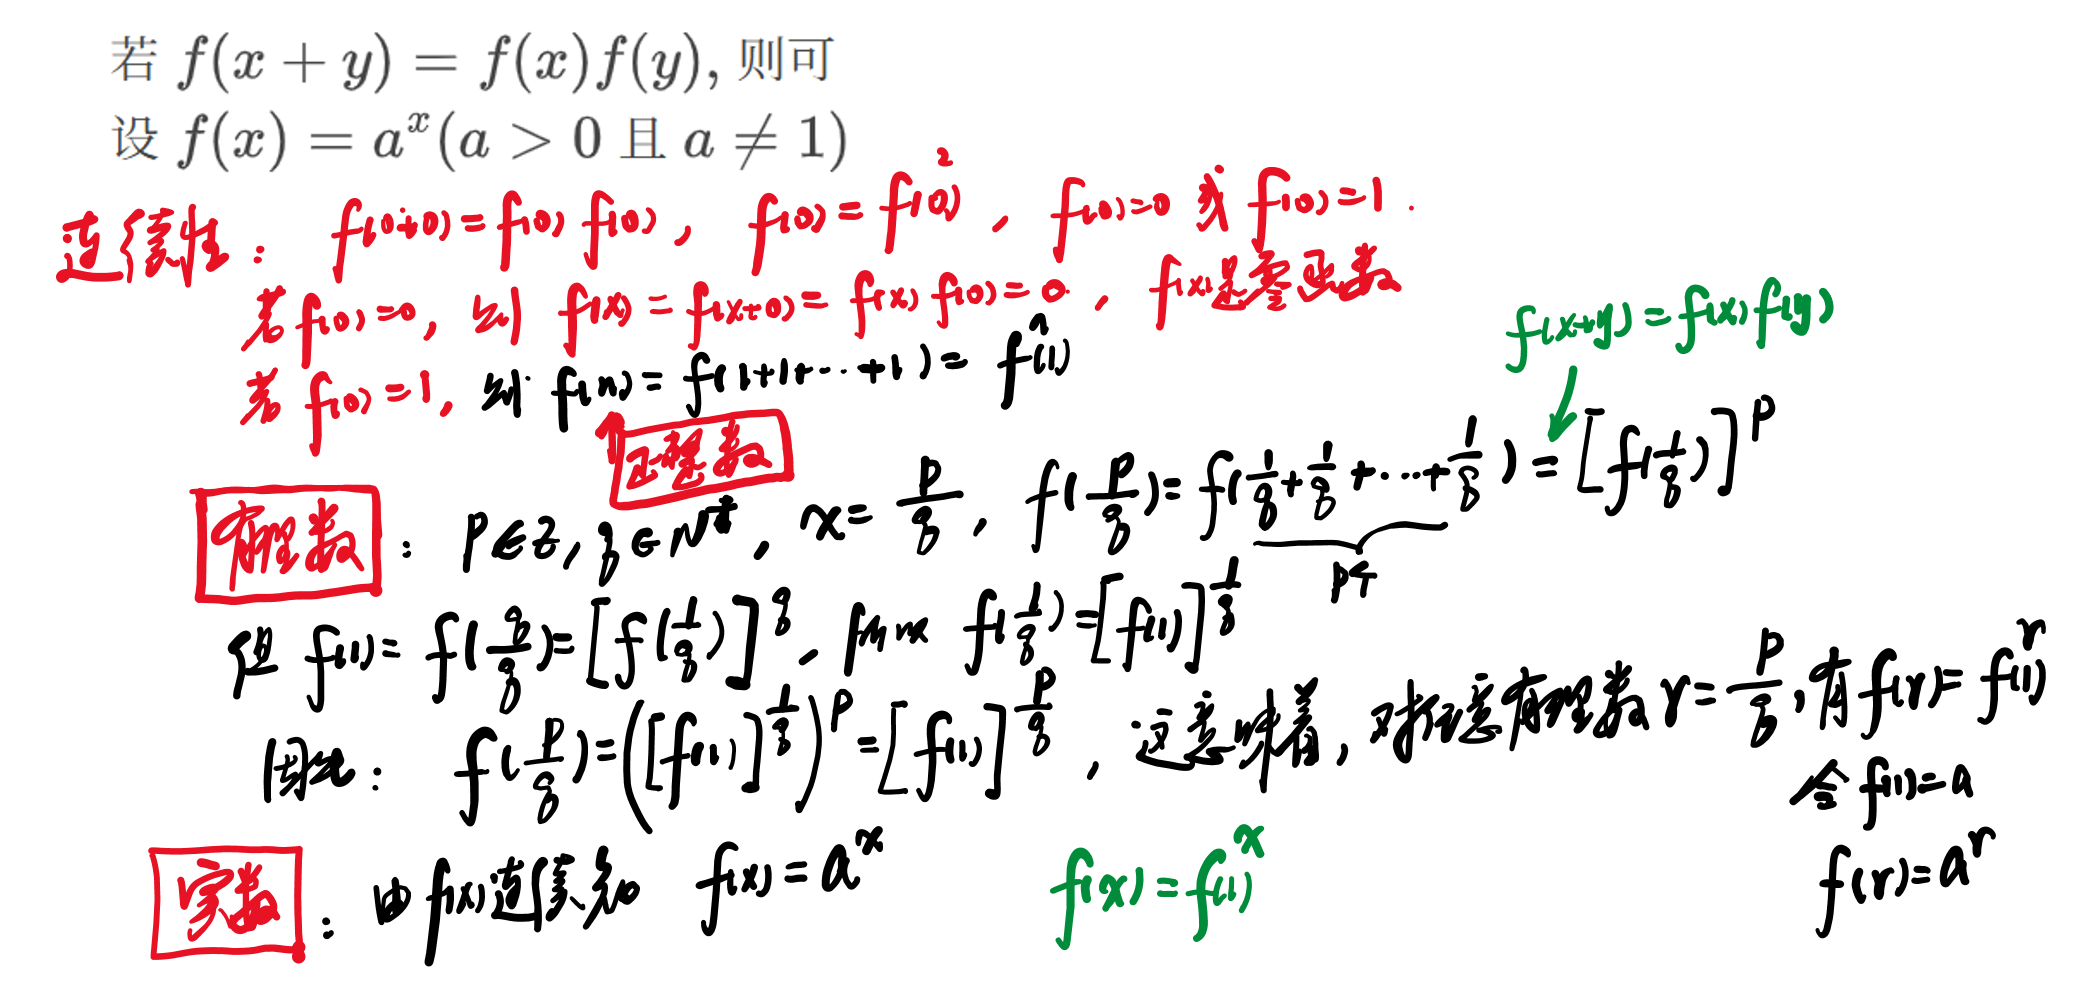 若 f(x + y) = f(x)f(y), 则可
设 f(x) = a^x(a > 0 且 a ≠ 1)
连续性： f(0+0)=f(0)f(0), f(0)=f(0)^2, f(0)=0 或 f(0)=1.
若f(0)=0, 则 f(x)=f(x+0)=f(x)f(0)=0, f(x)是零函数
若f(0)=1, 则 f(n)=f(1+1+…+1)=f(1)^n
正整数
f(x+y)=f(x)f(y)
有理数： p∈Z, q∈N^*, x=p/q, f(p/q)=f(1/q+1/q+…+1/q)=[f(1/q)]^p
p个
但 f(1)=f(q/q)=[f(1/q)]^q, 所以 f(1/q)=[f(1)]^{1/q}
因此： f(p/q)=([f(1)]^{1/q})^p=[f(1)]^{p/q}, 这意味着, 对任意有理数r=p/q, 有f(r)=f(1)^r
令f(1)=a
f(r)=a^r
实数： 由f(x)连续知 f(x)=a^x
f(x)=f(1)^x